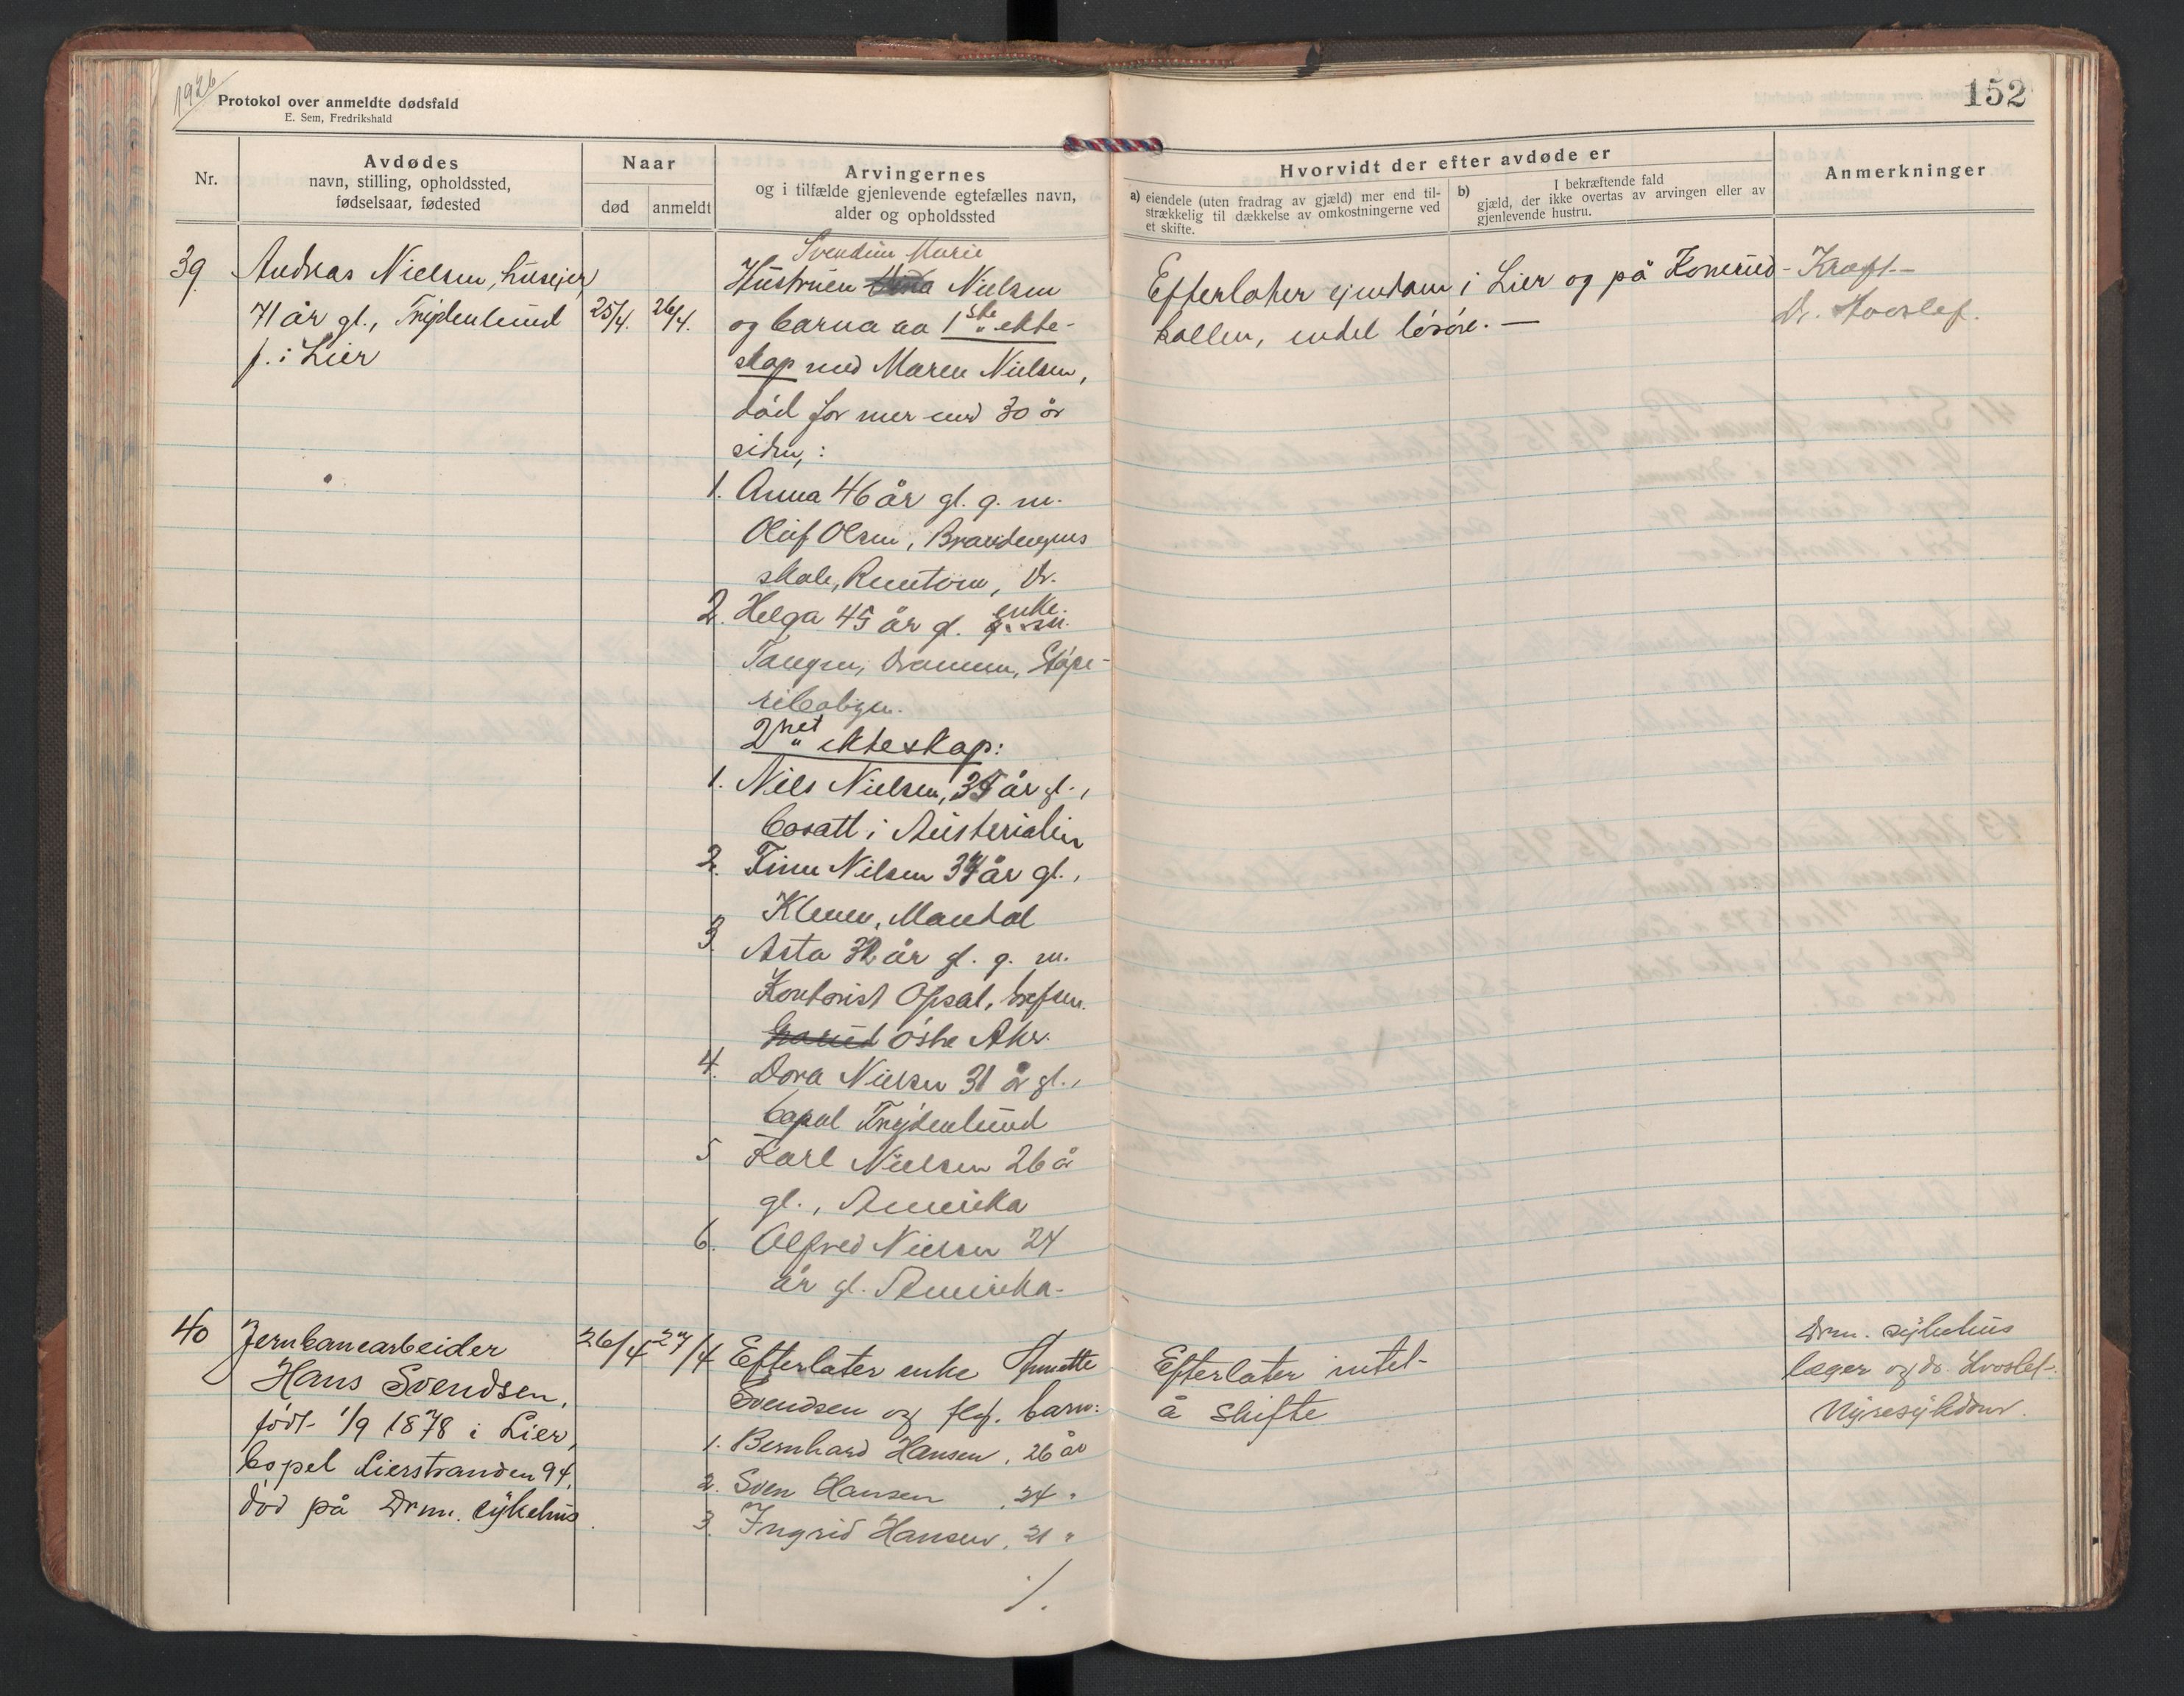 1926
Protokol over anmeldte dødsfald
E. Sem, Fredrikshald
152
Nr.
Avdødes
navn, stilling, opholdssted,
fødselsaar, fødested
Naar
død
anmeldt
Arvingernes
og i tilfælde gjenlevende egtefælles navn,
alder og opholdssted
Hvorvidt der efter avdøde er
a) eiendele (uten fradrag av gjæld) mer end til-
strækkelig til dækkelse av omkostningerne ved
et skifte.
b) I bekræftende fald
gjæld, der ikke overtas av arvingen eller av
gjenlevende hustru.
Anmerkninger
39
Andreas Nielsen, huseier,
71 år gl., Frydenlund
f. i Lier
25/4.
26/4.
Svendine Marie
Hustruen Nielsen
og barna av 1ste ekte-
skap med Maren Nielsen,
död for mer end 30 år
siden,:
1. Anna 46 år gl. g. m.
Oluf Olsen,
Dr.
2. Helga 45 år gl. g. m. enke.
Tangen, Drammen, Stöpe-
riboligen.
2net ekteskap:
1. Nils Nielsen, 35 år gl.,
bosatt i
2. Finn Nilsen 34 år gl.,
Kleven, Mandal
3. Asta 32 år gl. g. m.
Kontorist Opsal, Grefsen.
östre Aker.
4. Dora Nielsen 31 år gl.,
bopel Frydenlund
5 Karl Nielsen 26 år
gl., Amerika
6. Alfred Nielsen 24
år gl. Amerika.
Efterlater eiendom i Lier og på Konerud-
kollen, endel lösöre. —
Kræft —
Dr. Hvoslef.
40
Jernbanearbeider
Hans Svendsen,
født 1/9 1878 i Lier,
bopel Lierstranden 94,
död på Drm. sykehus.
26/4
27/4
Efterlater enke Annette
Svendsen og flg. barn:
1. Bernhard Hansen, 26 år
2. Sven Hansen , 24 "
3. Ingrid Hansen, 21 "
./.
Efterlater intet
å skifte
Drm. sykehus
læger og dr. Hvoslef.
Nyresykdom.